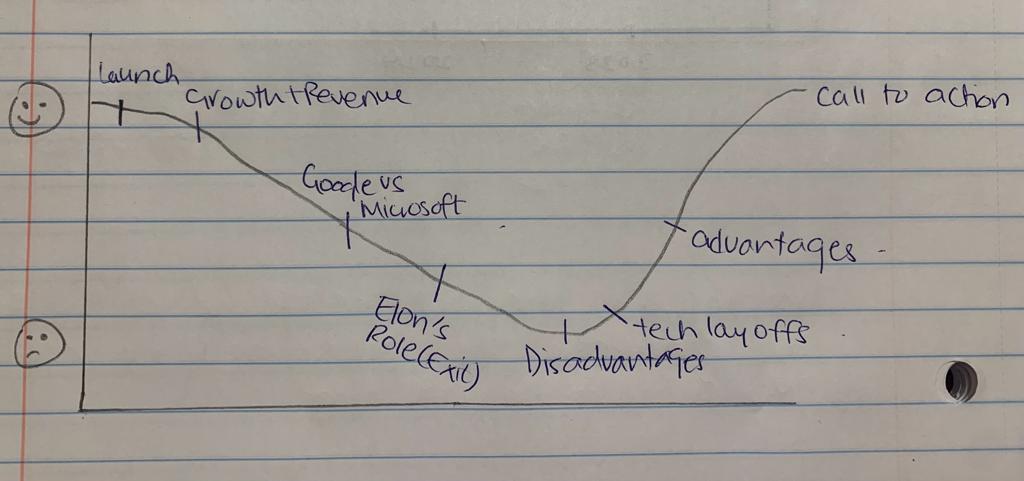 Launch
Growth+Revenue
Google vs
Microsoft
Elon's
Role(Exit)
Disadvantages
tech layoffs
advantages
Call to action